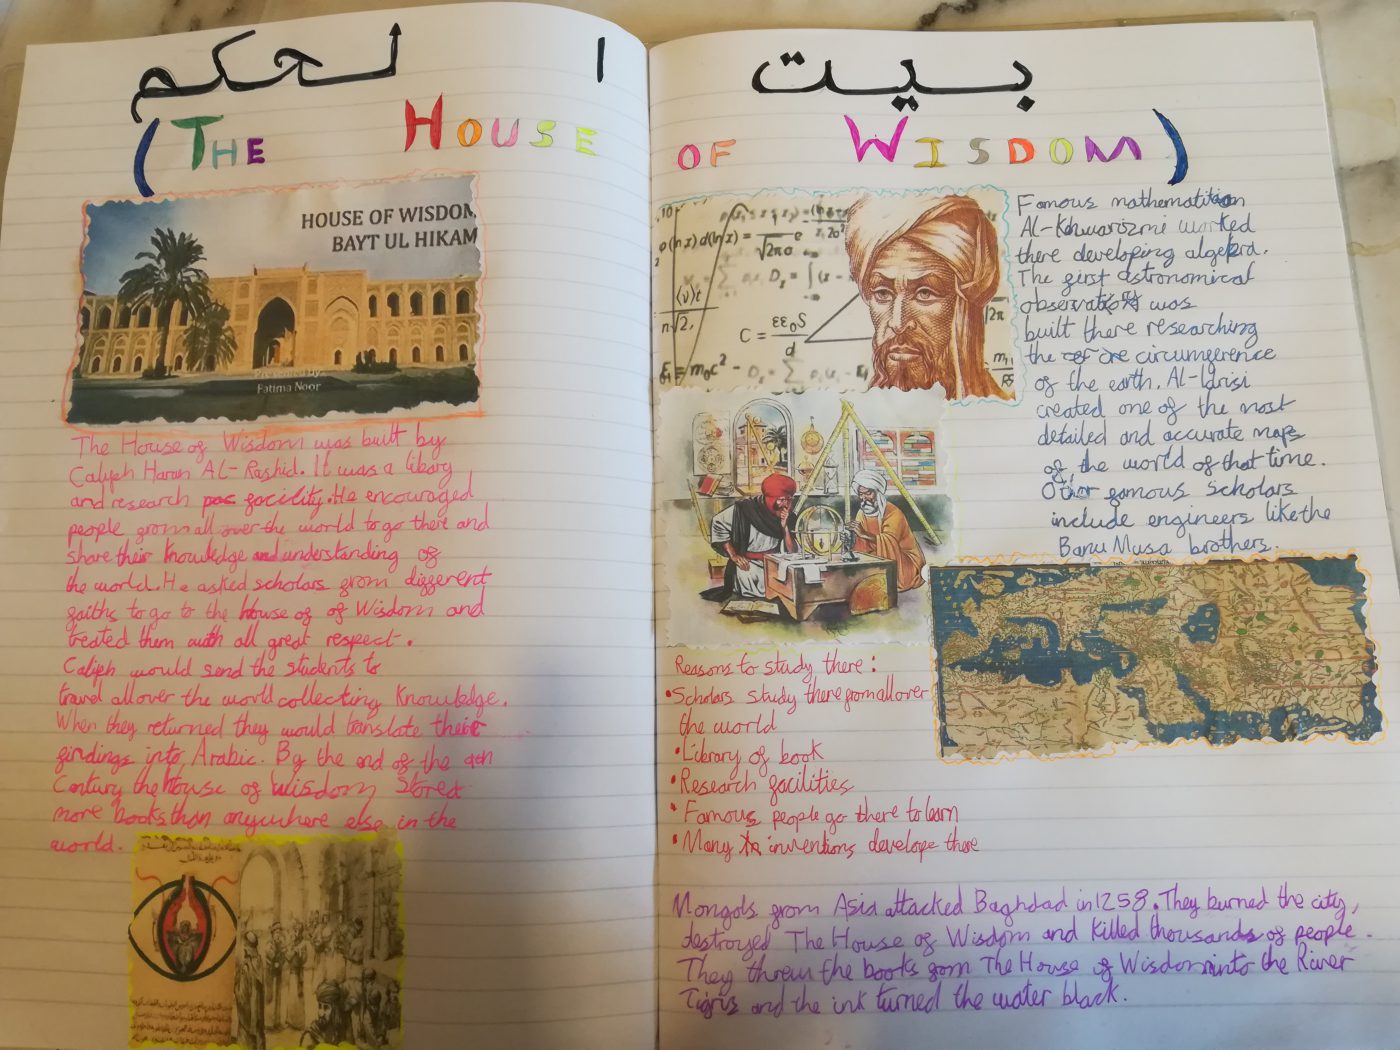 بيت ا لحكم
(THE HOUSE OF WISDOM)
HOUSE OF WISDOM
BAYT UL HIKAM
Presented by
Fatima Noor
The House of Wisdom was built by
Calipeh Harun AL-Rashid. It was a libary
and research facility. He encouraged
people from all over the world to go there and
share their knowledge and understanding of
the world. He asked scholars from different
faiths to go to the House of of Wisdom and
treated them with all great respect.
Calipeh would send the students to
travel all over the world collecting knowledge.
When they returned they would translate their
findings into Arabic. By the end of the 9th
Century the house of wisdom Stored
more books than anywhere else in the
world.
Famous mathematition
Al-Khwarizmi worked
there developing algebra.
The first astronomical
was
built there researching
the circumference
of the earth. Al-Idrisi
created one of the most
detailed and accurate maps
of the world of that time.
Other famous scholars
include engineers like the
Banu Musa brothers.
Reasons to study there:
•Scholars study there from all over
the world
•Library of book
•Research facilities
•Famous people go there to learn
•Many inventions develope there
Mongols from Asia attacked Baghdad in 1258. They burned the city,
destroyed The House of Wisdom and killed thousands of people.
They threw the books from The House of Wisdom into the River
Tigris and the ink turned the water black.